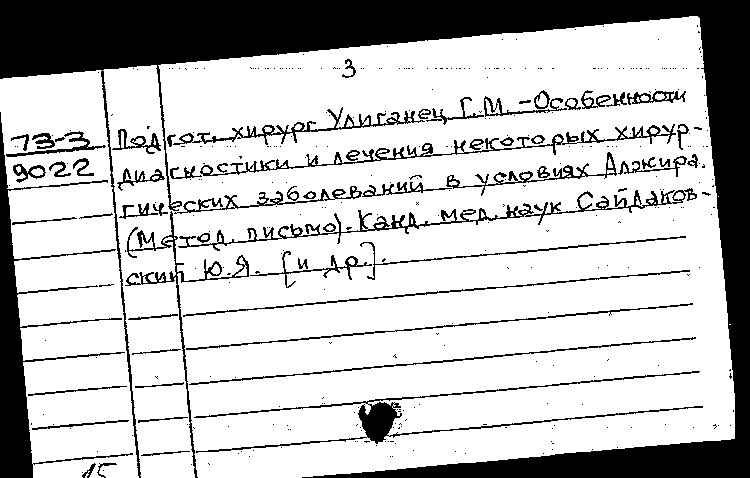 3
73-3 Подгот. хирург Улиганец Г.М. - Особенности
9022 диагностики и лечения некоторых хирур-
гических заболеваний в условиях Алжира.
(Метод. письмо). Канд. мед. наук Сайдаков-
ский Ю.Я. [и др.].
15